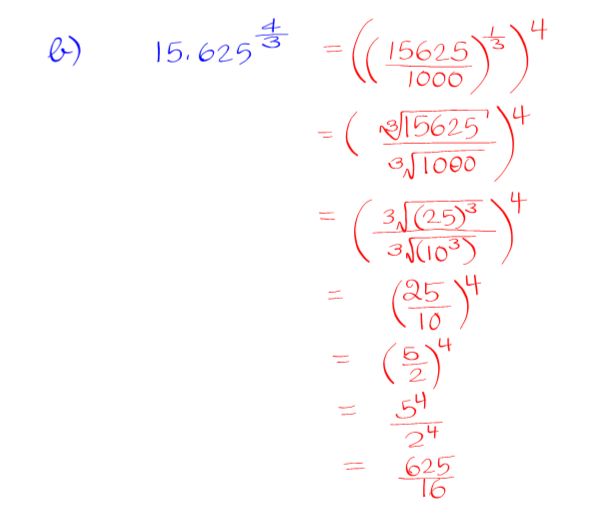 b) 15.625^(4/3) = (((15625/1000)^(1/3))^4
= (∛15625/∛1000)^4
= (∛(25)^3/∛(10^3))^4
= (25/10)^4
= (5/2)^4
= 5^4/2^4
= 625/16